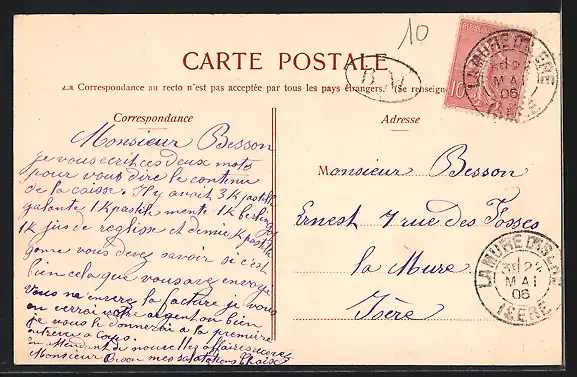 10
CARTE POSTALE
B V
La Correspondance au recto n'est pas acceptée par tous les pays étrangers. (Se renseign
10
LA MURE D'ISÈRE
MAI
06
Correspondance
Monsieur Besson
je vous ecrit ces deux mots
pour vous dire le contenu
de la caisse. Il y avait 3 k pastille
galante 1 k pastille mente 1 k
1 k jus de reglisse et demie k pastille
gome vous devez savoir si c'est
bien cela que vous avez
Vous me la facture je vous
en verrai votre argent ou bien
je vous le donnerai a la première
en de nouvelles affaires recevez
Monsieur mes salutations
Adresse
Monsieur Besson
Ernest 7 rue des Fosses
la Mure
Isère
LA MURE D'ISÈRE
MAI
06
ISÈRE